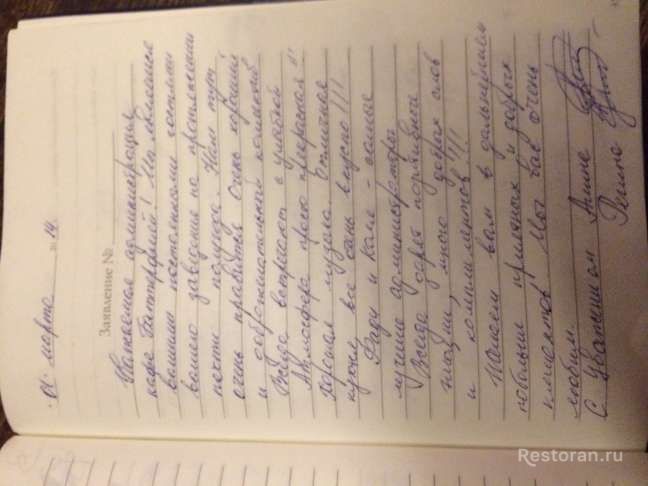 01 марта 2014
Заявление №
Уважаемая администрация
кафе! Мы являемся
вашими постоянными гостями
вашего заведения на протяжении
почти полугода. Нам тут
очень нравится. Очень хороший
и коллектив.
Всегда встречают с улыбкой
Атмосфера просто прекрасная!!
Хорошая музыка. Отличная
кухня все очень вкусно!!!
Ради и Коле - самые
лучшие администраторы
Всегда дарят позитивные
эмоции, много добрых слов
и комплиментов!!!
Желаем вам в дальнейшем
побольше приятных и добрых
клиентов! Мы вас очень
любим.
С Уважением
Restoran.ru